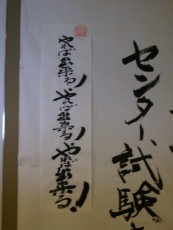 センター試験
やれば出来る!やれば出来る!やれば出来る!